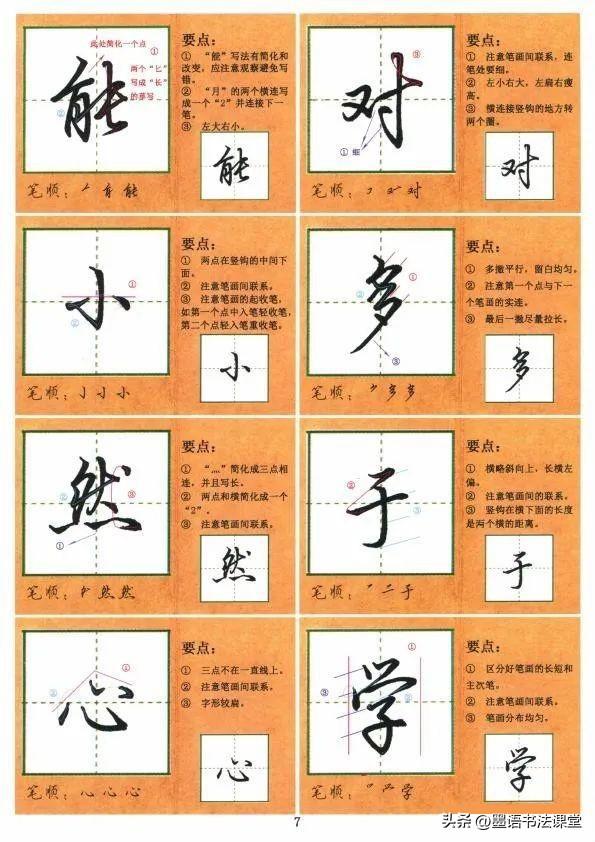 此处简化一个点
①
两个“匕”
写成“长”
的草写
②
能
要点：
① “能”写法有简化和
改变，应注意观察避免写
错。
② “月”的两个横连写
成一个“2”并连接下一
笔。
③ 左大右小。
能
笔顺：
能
③
对
① 细
要点：
① 注意笔画间联系，连
笔处要细。
② 左小右大，左扁右瘦
高。
③ 横连接竖钩的地方转
两个圈。
对
笔顺：
对
①
②
小
要点：
① 两点在竖钩的中间下
面。
② 注意笔画间联系。
③ 注意笔画的起收笔，
如第一个点中入笔轻收笔，
第二个点轻入笔重收笔。
小
笔顺：小小小
①
②
多
③
要点：
① 多撇平行，留白均匀。
② 注意第一个点与下一
个笔画的实连。
③ 最后一撇尽量拉长。
多
笔顺：
多多
②
③
然
①
要点：
① “灬”简化成三点相
连，并且写长。
② 两点和横简化成一个
“2”。
③ 注意笔画间联系。
然
笔顺：
然然
①
②
于
③
要点：
① 横略斜向上，长横左
偏。
② 注意笔画间的联系。
③ 竖钩在横下面的长度
是两个横的距离。
于
笔顺：一二于
①
②
心
要点：
① 三点不在一直线上。
② 注意笔画间联系。
③ 字形较扁。
心
笔顺：心心心
①
③
②
学
要点：
① 区分好笔画的长短和
主次笔。
② 注意笔画间联系。
③ 笔画分布均匀。
学
笔顺：
学
7
头条 @墨语书法课堂